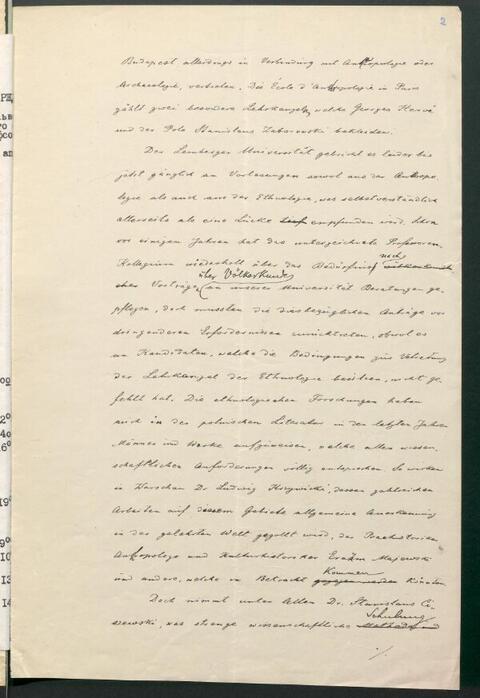 2
Budapest allerdings in Verbindung mit Anthropologie oder
Archaeologie, vertreten. Die École d'Anthropologie in Paris
zählt zwei besondere Lehrkanzeln, welche Georges Hervé
und der Pole Stanislaus Zaborowski bekleiden.
Der Lemberger Universität gebricht es leider bis
jetzt gänzlich an Vorlesungen sowol aus der Anthropo-
logie als auch aus der Ethnologie, was selbstverständlich
allerseits als eine Lücke empfunden wird. Schon
vor einigen Jahren hat das unterzeichnete Professoren-
Kollegium wiederholt über das Bedürfniss nach
über Völkerkunde
Vorträge an unserer Universität Beratungen ge-
pflogen, doch mussten die diesbezüglichen Anträge vor
dringenderen Erfordernissen zurücktreten, obwol es
an Kandidaten, welche die Bedingungen zur Vertretung
der Lehrkanzel der Ethnologie besitzen, nicht ge-
fehlt hat. Die ethnologischen Forschungen haben
auch in der polnischen Literatur in den letzten Jahren
Männer und Werke aufzuweisen, welche allen wissen-
schaftlichen Anforderungen völlig entsprechen. So wirken
in Warschau Dr Ludwig Krzywicki, dessen zahlreichen
Arbeiten auf diesem Gebiete allgemeine Anerkennung
in der gelehrten Welt gezollt wird, der Praehistoriker
Anthropologe und Kulturhistoriker Erazm Majewski
kommen
und andere, welche in Betracht könnten
Doch nimmt unter Allen Dr. Stanislaus Ci-
Schulung
szewski, was strenge wissenschaftliche
./.